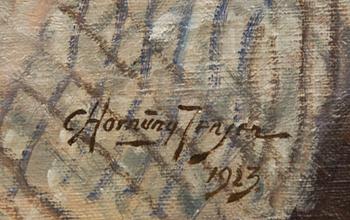 C Hornung Jensen
1923